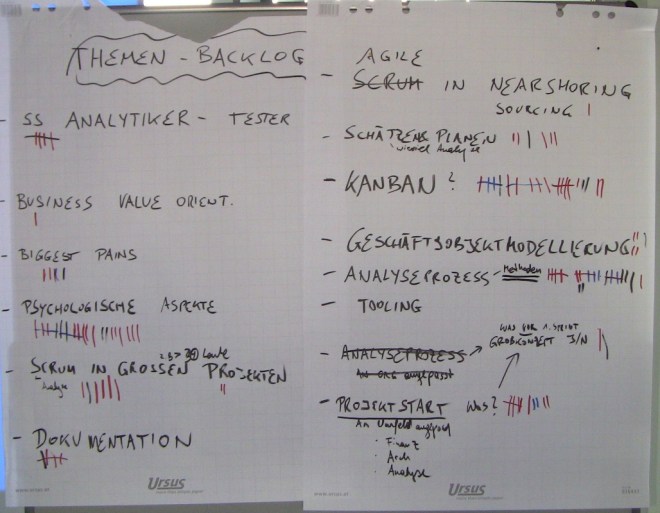 THEMEN - BACKLOG
- SS ANALYTIKER - TESTER
- BUSINESS VALUE ORIENT.
- BIGGEST PAINS
- PSYCHOLOGISCHE ASPEKTE
- SCRUM IN GROSSEN PROJEKTEN
Leute
Analyse
- DOKUMENTATION
www.ursus.at
Ursus
AGILE
- SCRUM IN NEARSHORING
SOURCING
- SCHÄTZEN & PLANEN
wieviel Analyse
- KANBAN?
- GESCHÄFTSOBJEKTMODELLIERUNG
- ANALYSEPROZESS - Methoden
- TOOLING
WAS VOR 1. SPRINT
GROBKONZEPT J/N
- ANALYSEPROZESS
an angepasst
- PROJEKTSTART Was?
An Umfeld angepasst
· Finanz
· Arch
· Analyse
www.ursus.at
Ursus